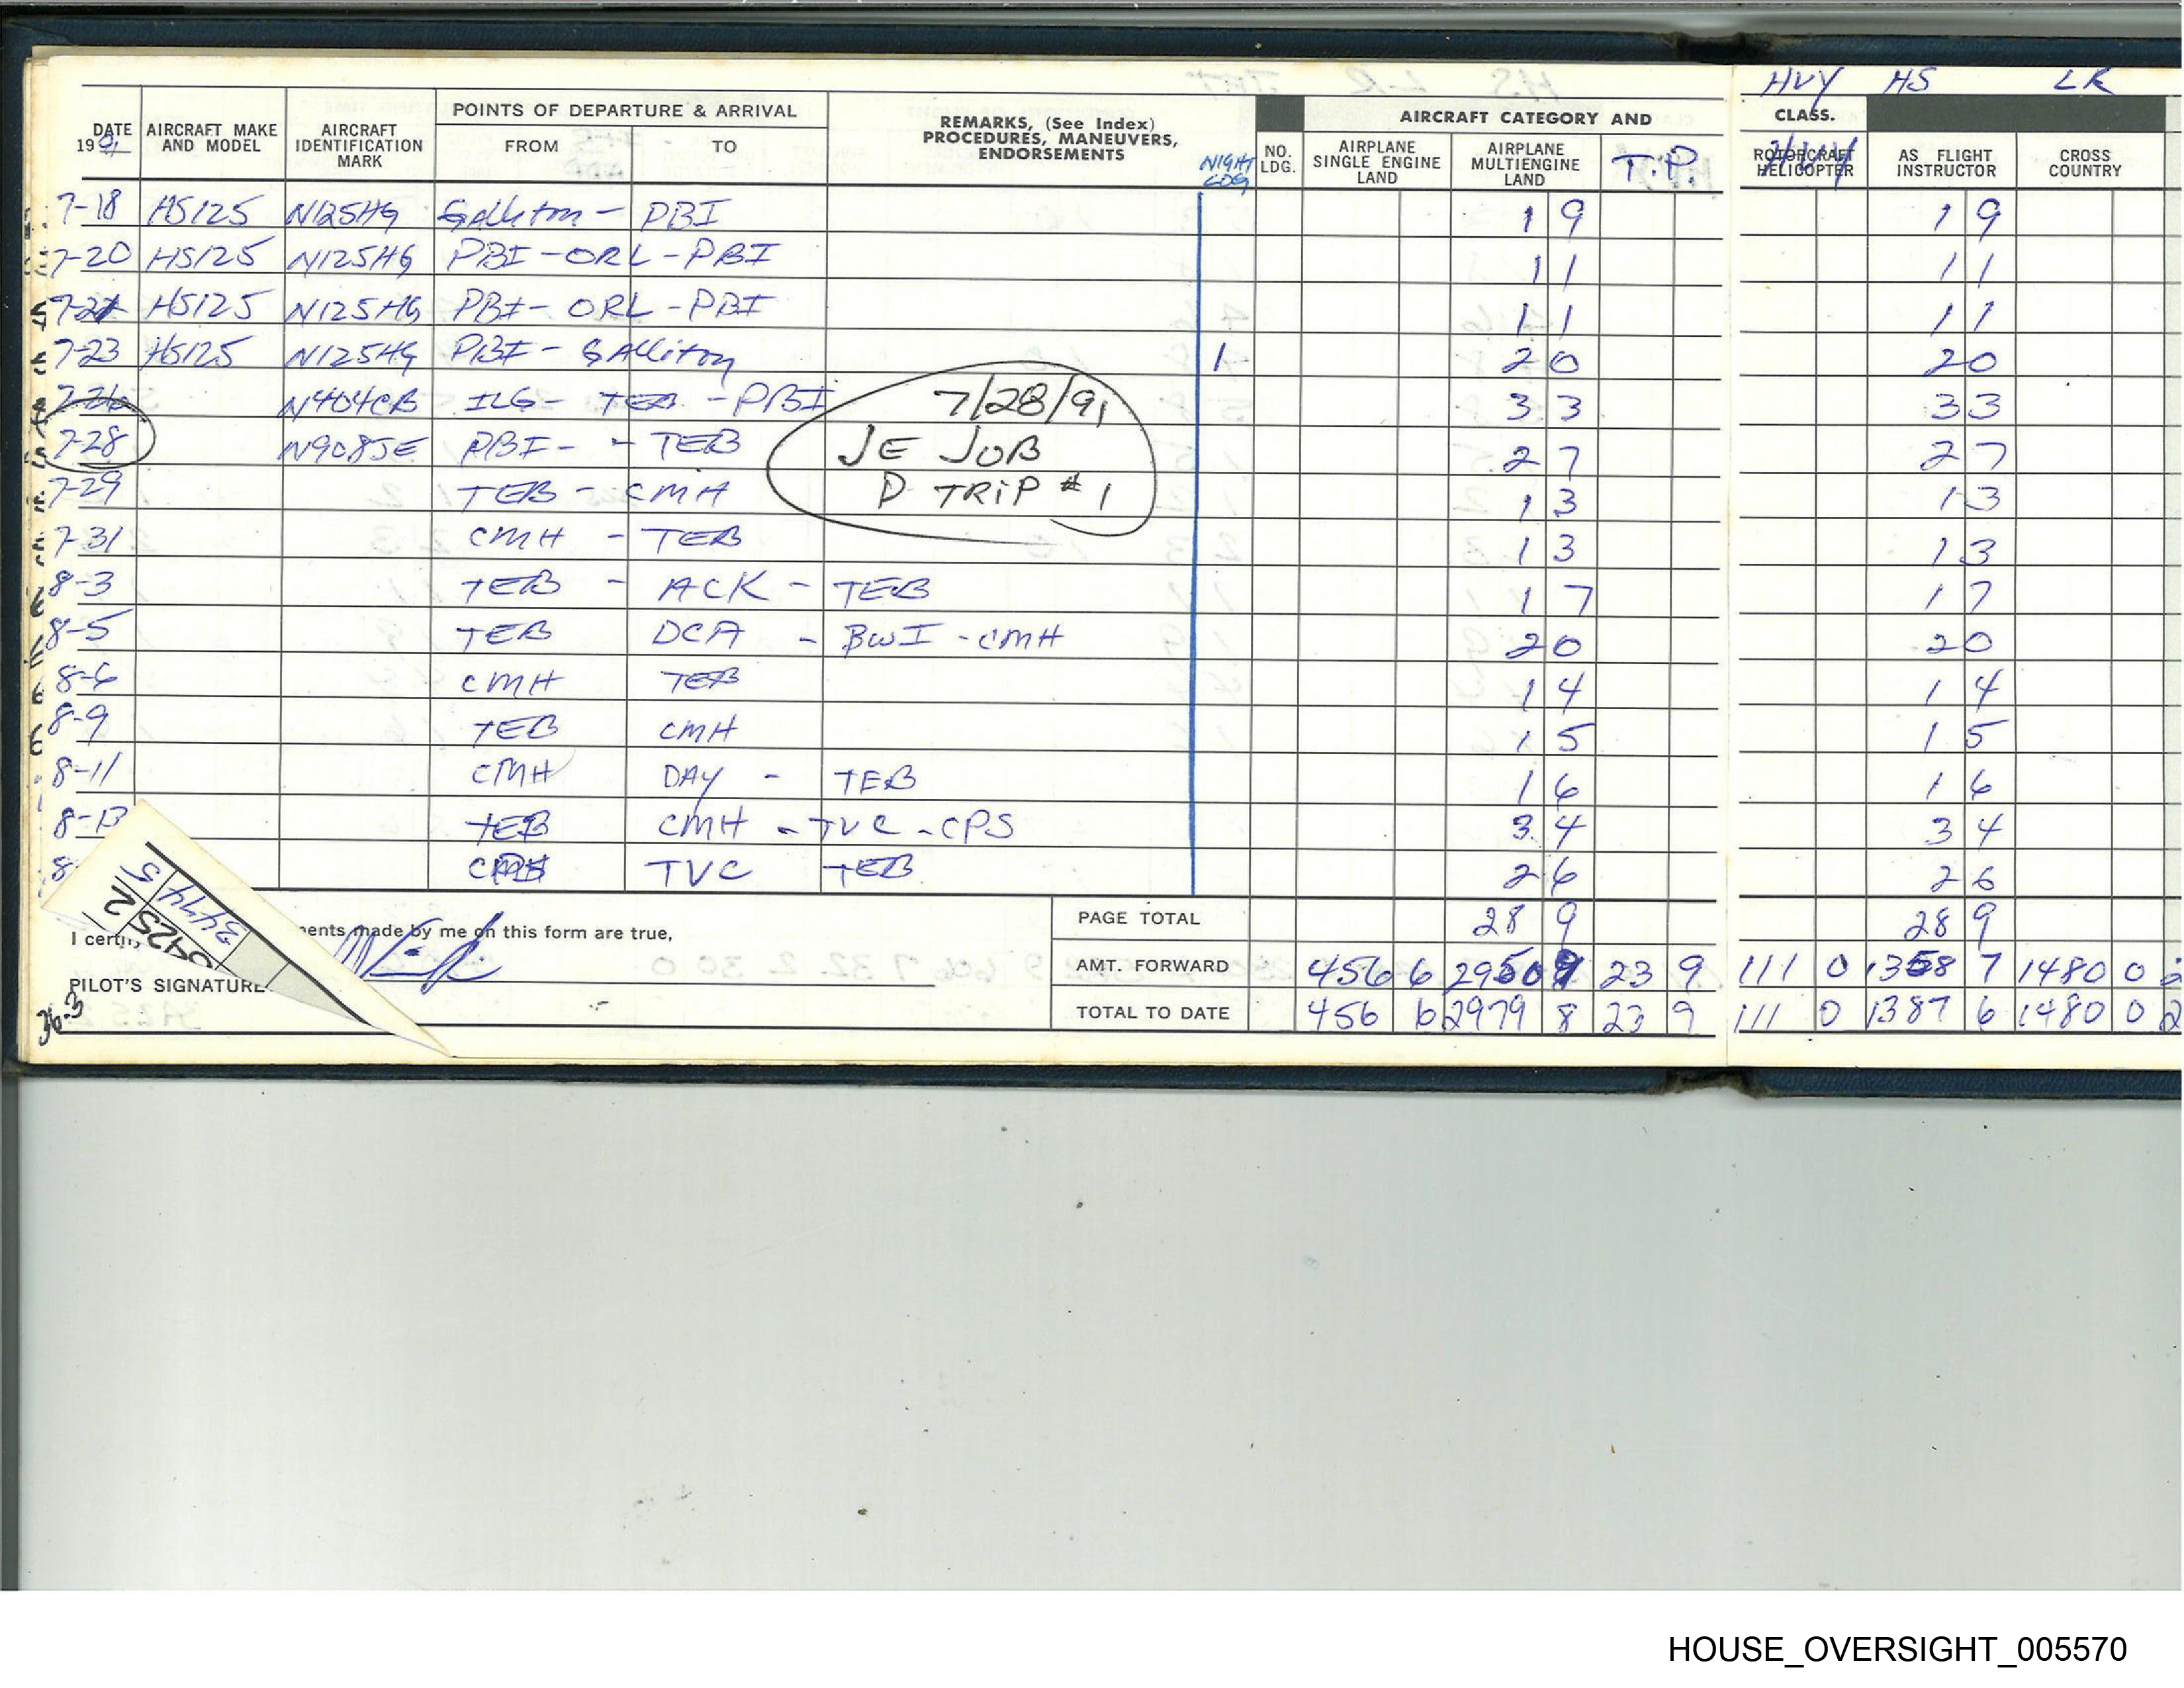 HVY HS LR
DATE 1991 AIRCRAFT MAKE AND MODEL AIRCRAFT IDENTIFICATION MARK POINTS OF DEPARTURE & ARRIVAL FROM TO REMARKS, (See Index) PROCEDURES, MANEUVERS, ENDORSEMENTS NIGHT LDG NO. LDG. AIRCRAFT CATEGORY AND CLASS. AIRPLANE SINGLE ENGINE LAND AIRPLANE MULTIENGINE LAND T.P. ROTORCRAFT HELICOPTER HVY AS FLIGHT INSTRUCTOR CROSS COUNTRY
7-18 HS125 N125HG - PBI 1 9 1 9
7-20 HS125 N125HG PBI - ORL - PBI 1 1 1 1
HS125 N125HG PBI - ORL - PBI 1 1 1 1
7-23 HS125 N125HG PBI - 1 2 0 20
7-26 N404CB ILG - TEB - PBI 7/28/91 3 3 33
7-28 N908JE PBI - - TEB JE JOB 2 7 27
7-29 TEB - CMH D TRIP #1 1 3 13
7-31 CMH - TEB 1 3 13
8-3 TEB - ACK - TEB 1 7 17
8-5 TEB DCA - BWI - CMH 2 0 20
8-6 CMH TEB 1 4 1 4
8-9 TEB CMH 1 5 1 5
8-11 CMH DAY - TEB 1 6 1 6
8-13 TEB CMH - TVC - CPS 3 4 3 4
8- TVC TEB 2 6 2 6
3474 5
2
I certify ents made by me on this form are true,
PAGE TOTAL 28 9 28 9
AMT. FORWARD 456 6 2950 9 23 9 111 0 1358 7 1480 0
PILOT'S SIGNATURE
TOTAL TO DATE 456 6 2979 8 23 9 111 0 1387 6 1480 0
36.3
HOUSE_OVERSIGHT_005570